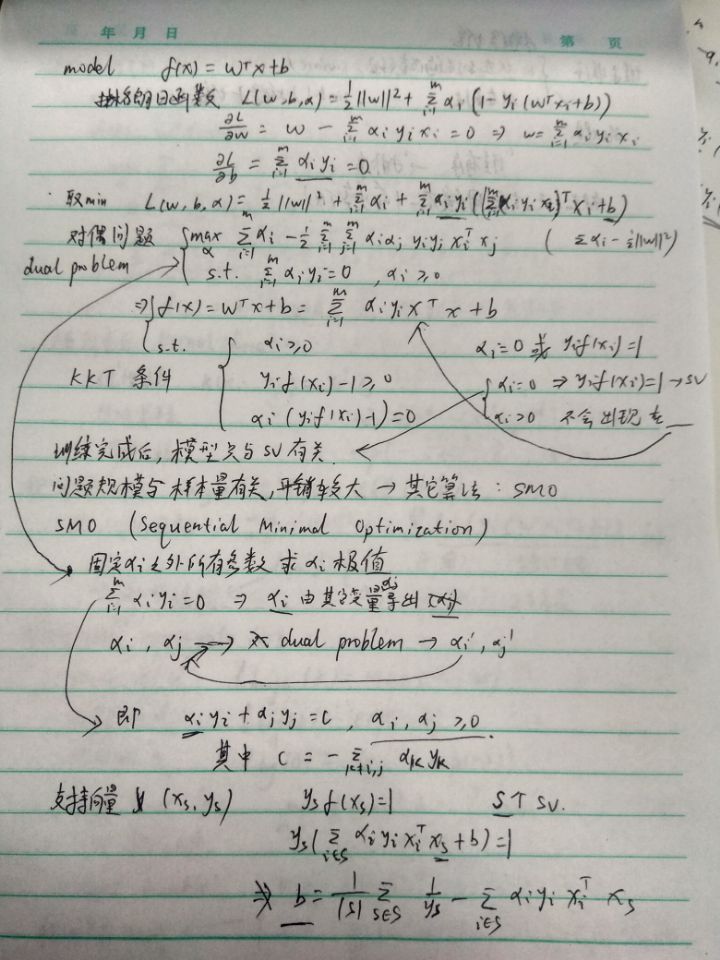 年 月 日 第 页
model f(x) = wᵀx + b
拉格朗日函数 L(w,b,α) = ½||w||² + Σ_{i=1}^{m} αi (1 - yi(wᵀxi+b))
∂L/∂w = w - Σ_{i=1}^{m} αi yi xi = 0 ⇒ w = Σ_{i=1}^{m} αi yi xi
∂L/∂b = Σ_{i=1}^{m} αi yi = 0
取min L(w,b,α) = ½||w||² + Σ_{i=1}^{m} αi + Σ_{i=1}^{m} αi yi ((Σ_{i=1}^{m} αi yi xi)ᵀ xi + b)
对偶问题 { max_α Σ_{i=1}^{m} αi - ½ Σ_{i=1}^{m} Σ_{j=1}^{m} αi αj yi yj xiᵀ xj (Σαi - ½||w||²)
dual problem s.t. Σ_{i=1}^{m} αi yi = 0 , αi ≥ 0
⇒ { f(x) = wᵀx + b = Σ_{i=1}^{m} αi yi xᵀ x + b
s.t. { αi ≥ 0 αi = 0 或 yi f(xi) = 1
KKT 条件 yi f(xi) - 1 ≥ 0 { αi = 0 ⇒ yi f(xi) = 1 → SV
αi (yi f(xi) - 1) = 0 αi > 0 不会出现在
训练完成后, 模型只与 SV 有关.
问题规模与样本量有关, 开销较大 → 其它算法 : SMO
SMO (Sequential Minimal Optimization)
固定αi之外所有参数 求 αi 极值
Σ_{i=1}^{m} αi yi = 0 ⇒ αi 由其它变量αj导出
αi , αj → dual problem → αi' , αj'
即 αi yi + αj yj = c , αi , αj ≥ 0 .
其中 c = - Σ_{k≠i,j} αk yk
支持向量 (xs, ys) ys f(xs) = 1 S个 SV.
ys (Σ_{i∈S} αi yi xiᵀ xs + b) = 1
⇒ b = 1/|S| Σ_{s∈S} 1/ys - Σ_{i∈S} αi yi xiᵀ xs